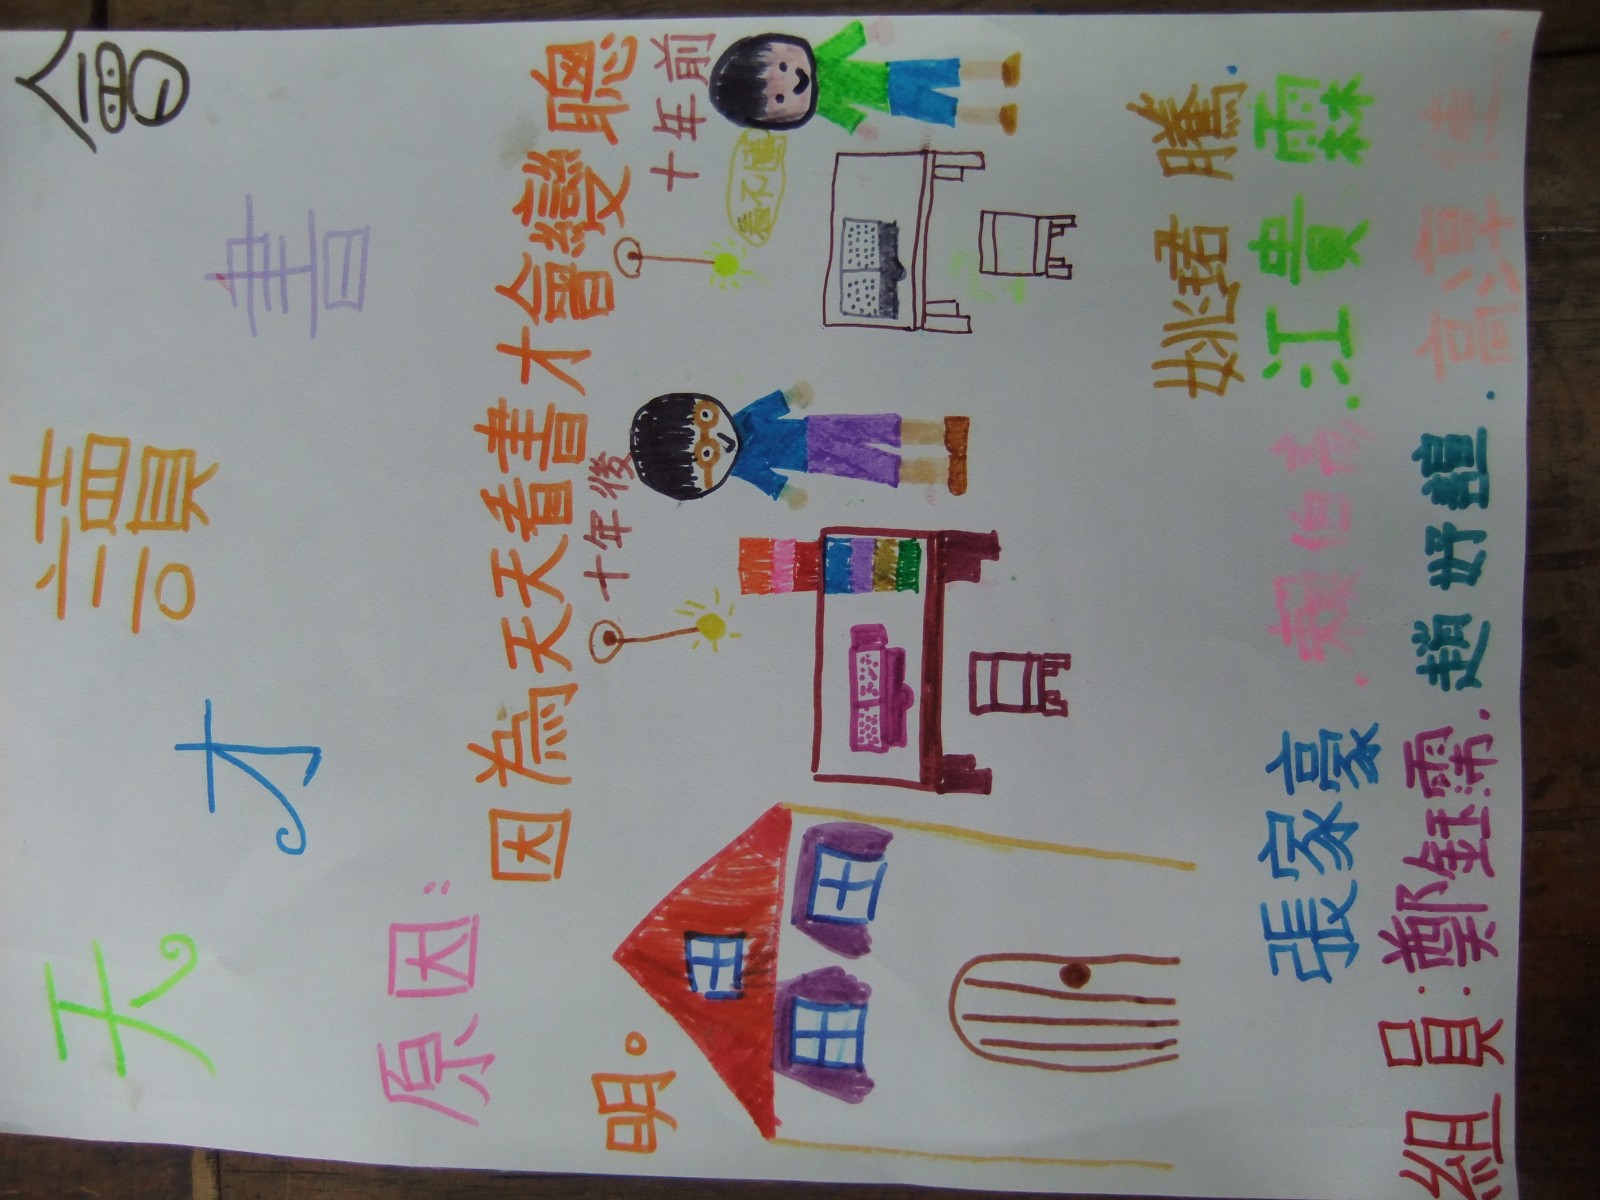 天才讀書會
原因:
因為天天看書才會變聰
明。
十年後
十年前
看不懂
姚珺騰.
張家豪.伯.江貴霖
組員:鄭鈺霈.趙妤.高淳佳.